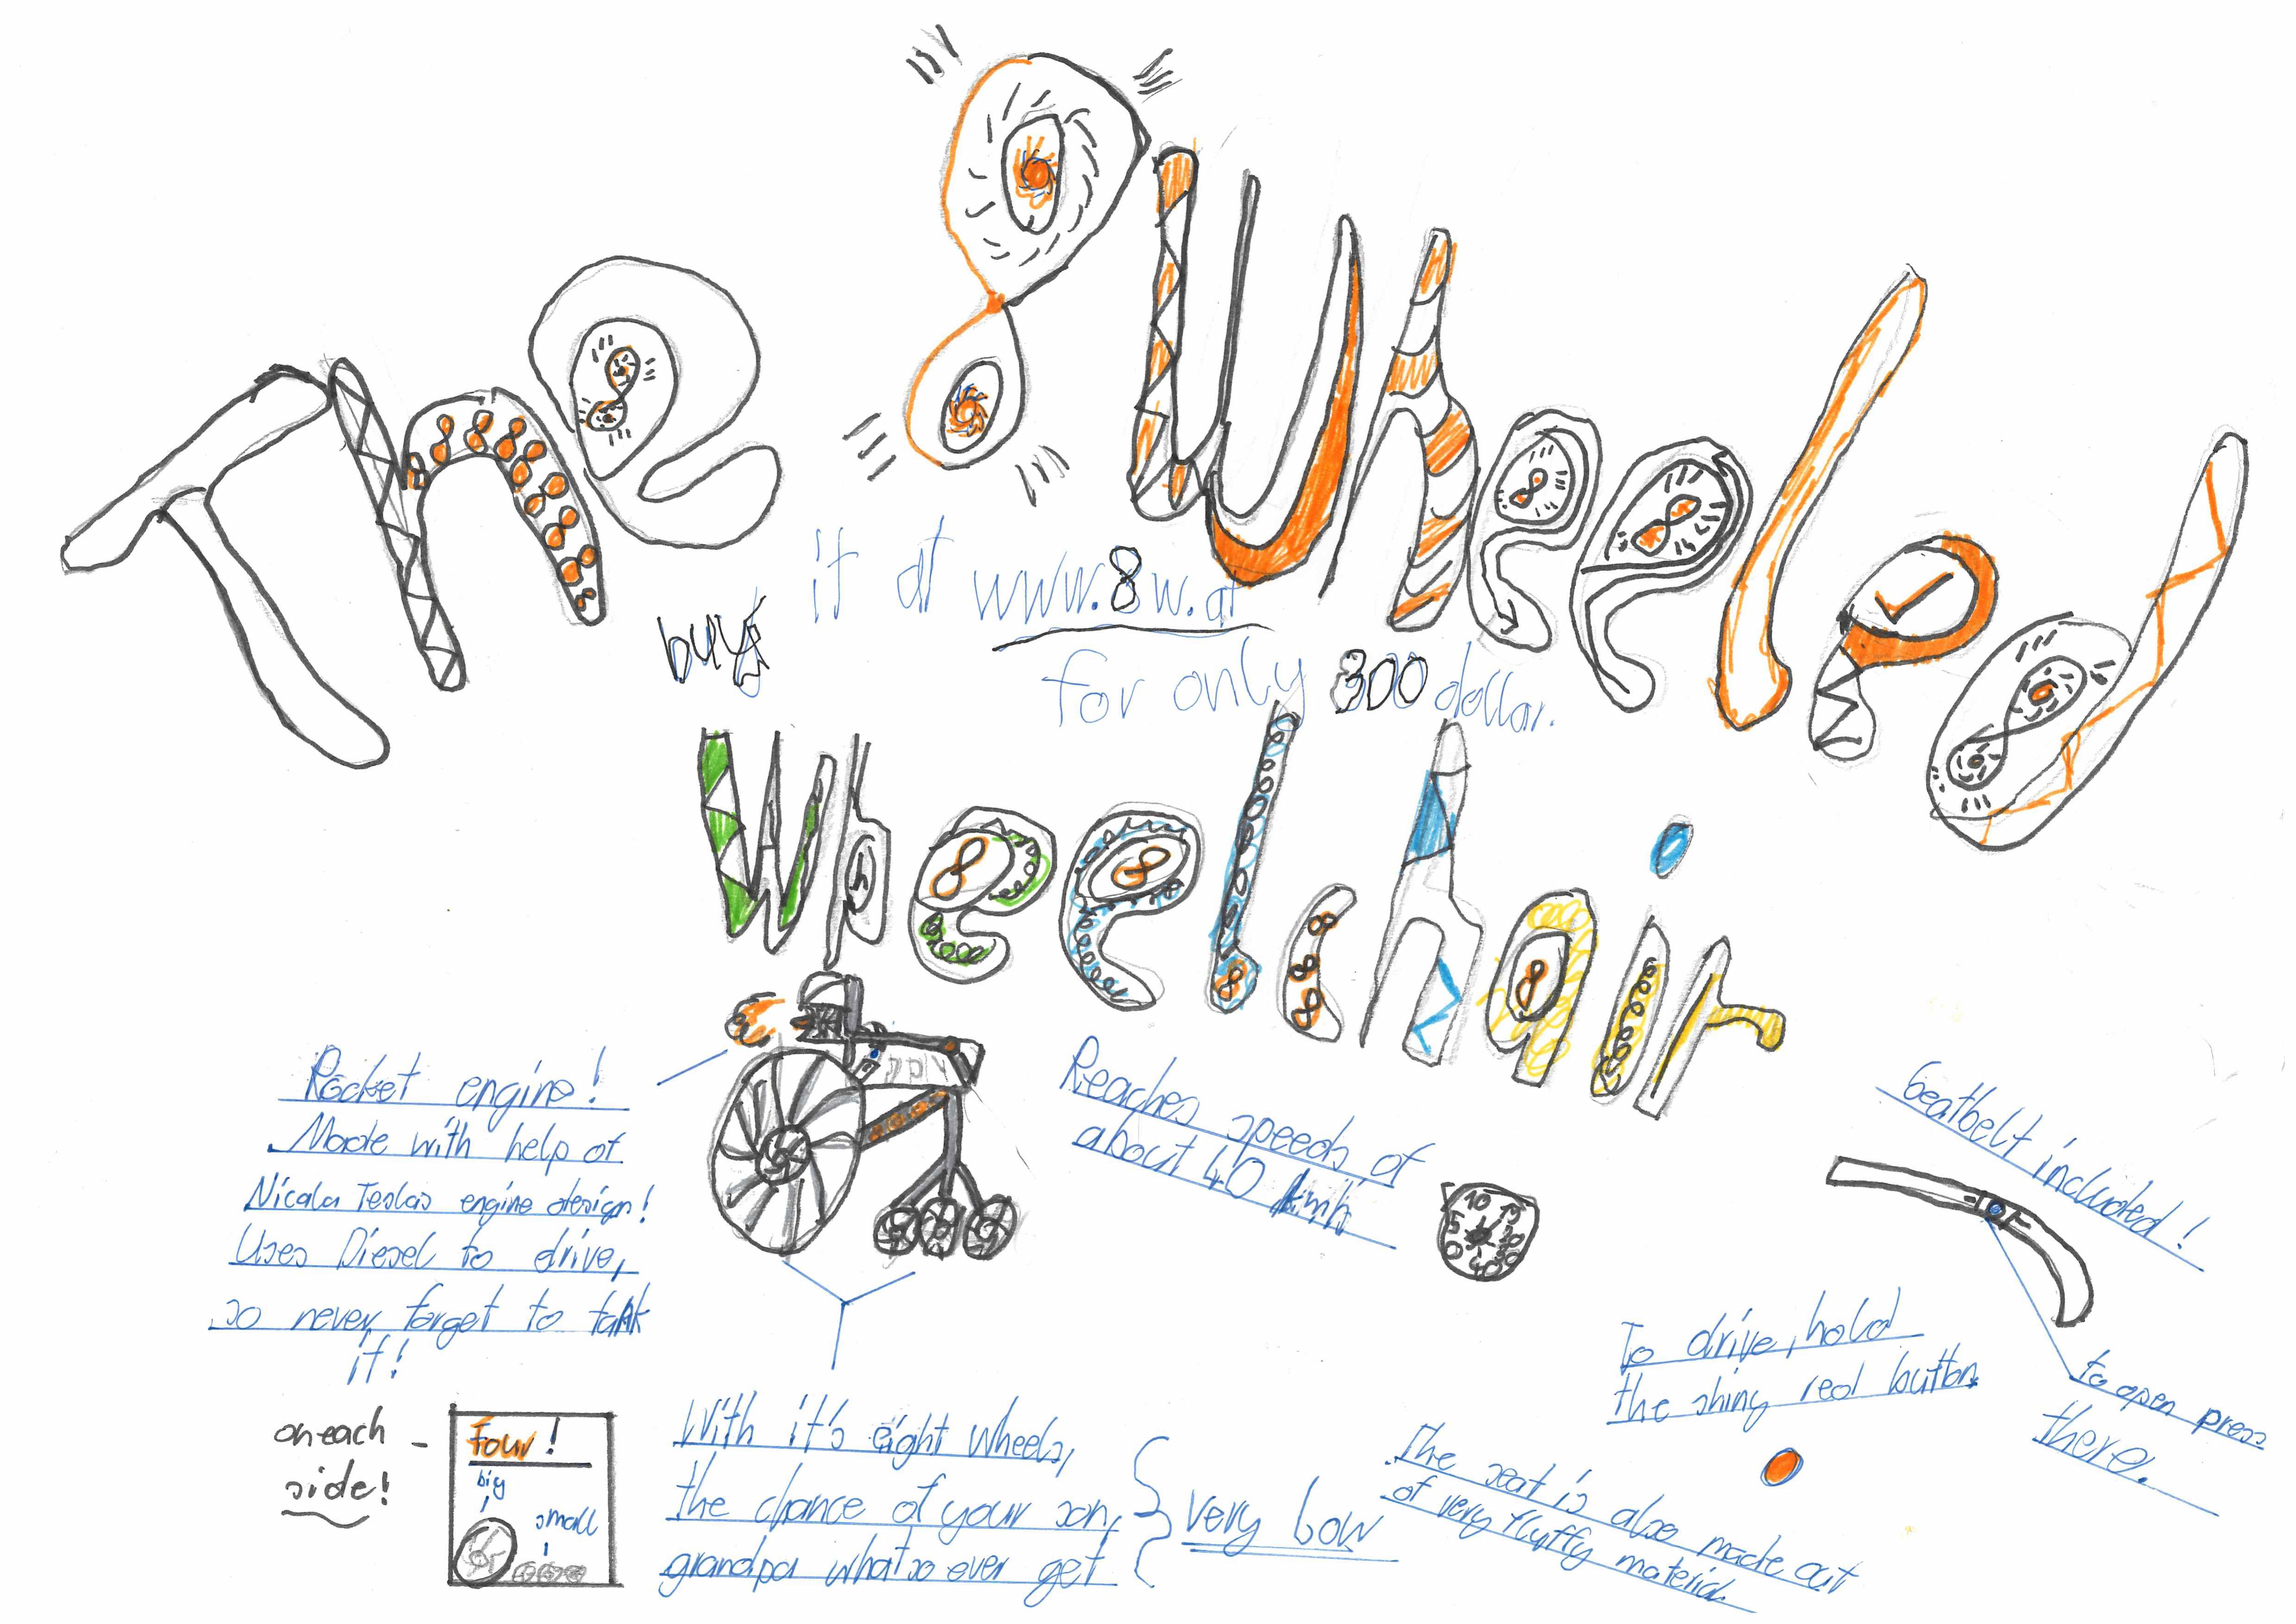 The 8 Wheeled
buy it at www.8w.at
for only 300 dollar.
Wheelchair
Rocket engine!
Made with help of
Nicala Teslas engine design!
Uses Diesel to drive,
so never forget to tank
it!
Reaches speeds of
about 40 kmh
10
40
Seatbelt included!
to open press
there.
To drive, hold
the shiny red button.
on each
side!
Four!
big
small
With it's eight wheels,
the chance of your son,
grandpa whatso ever get
very low
The seat is also made out
of very fluffy material.